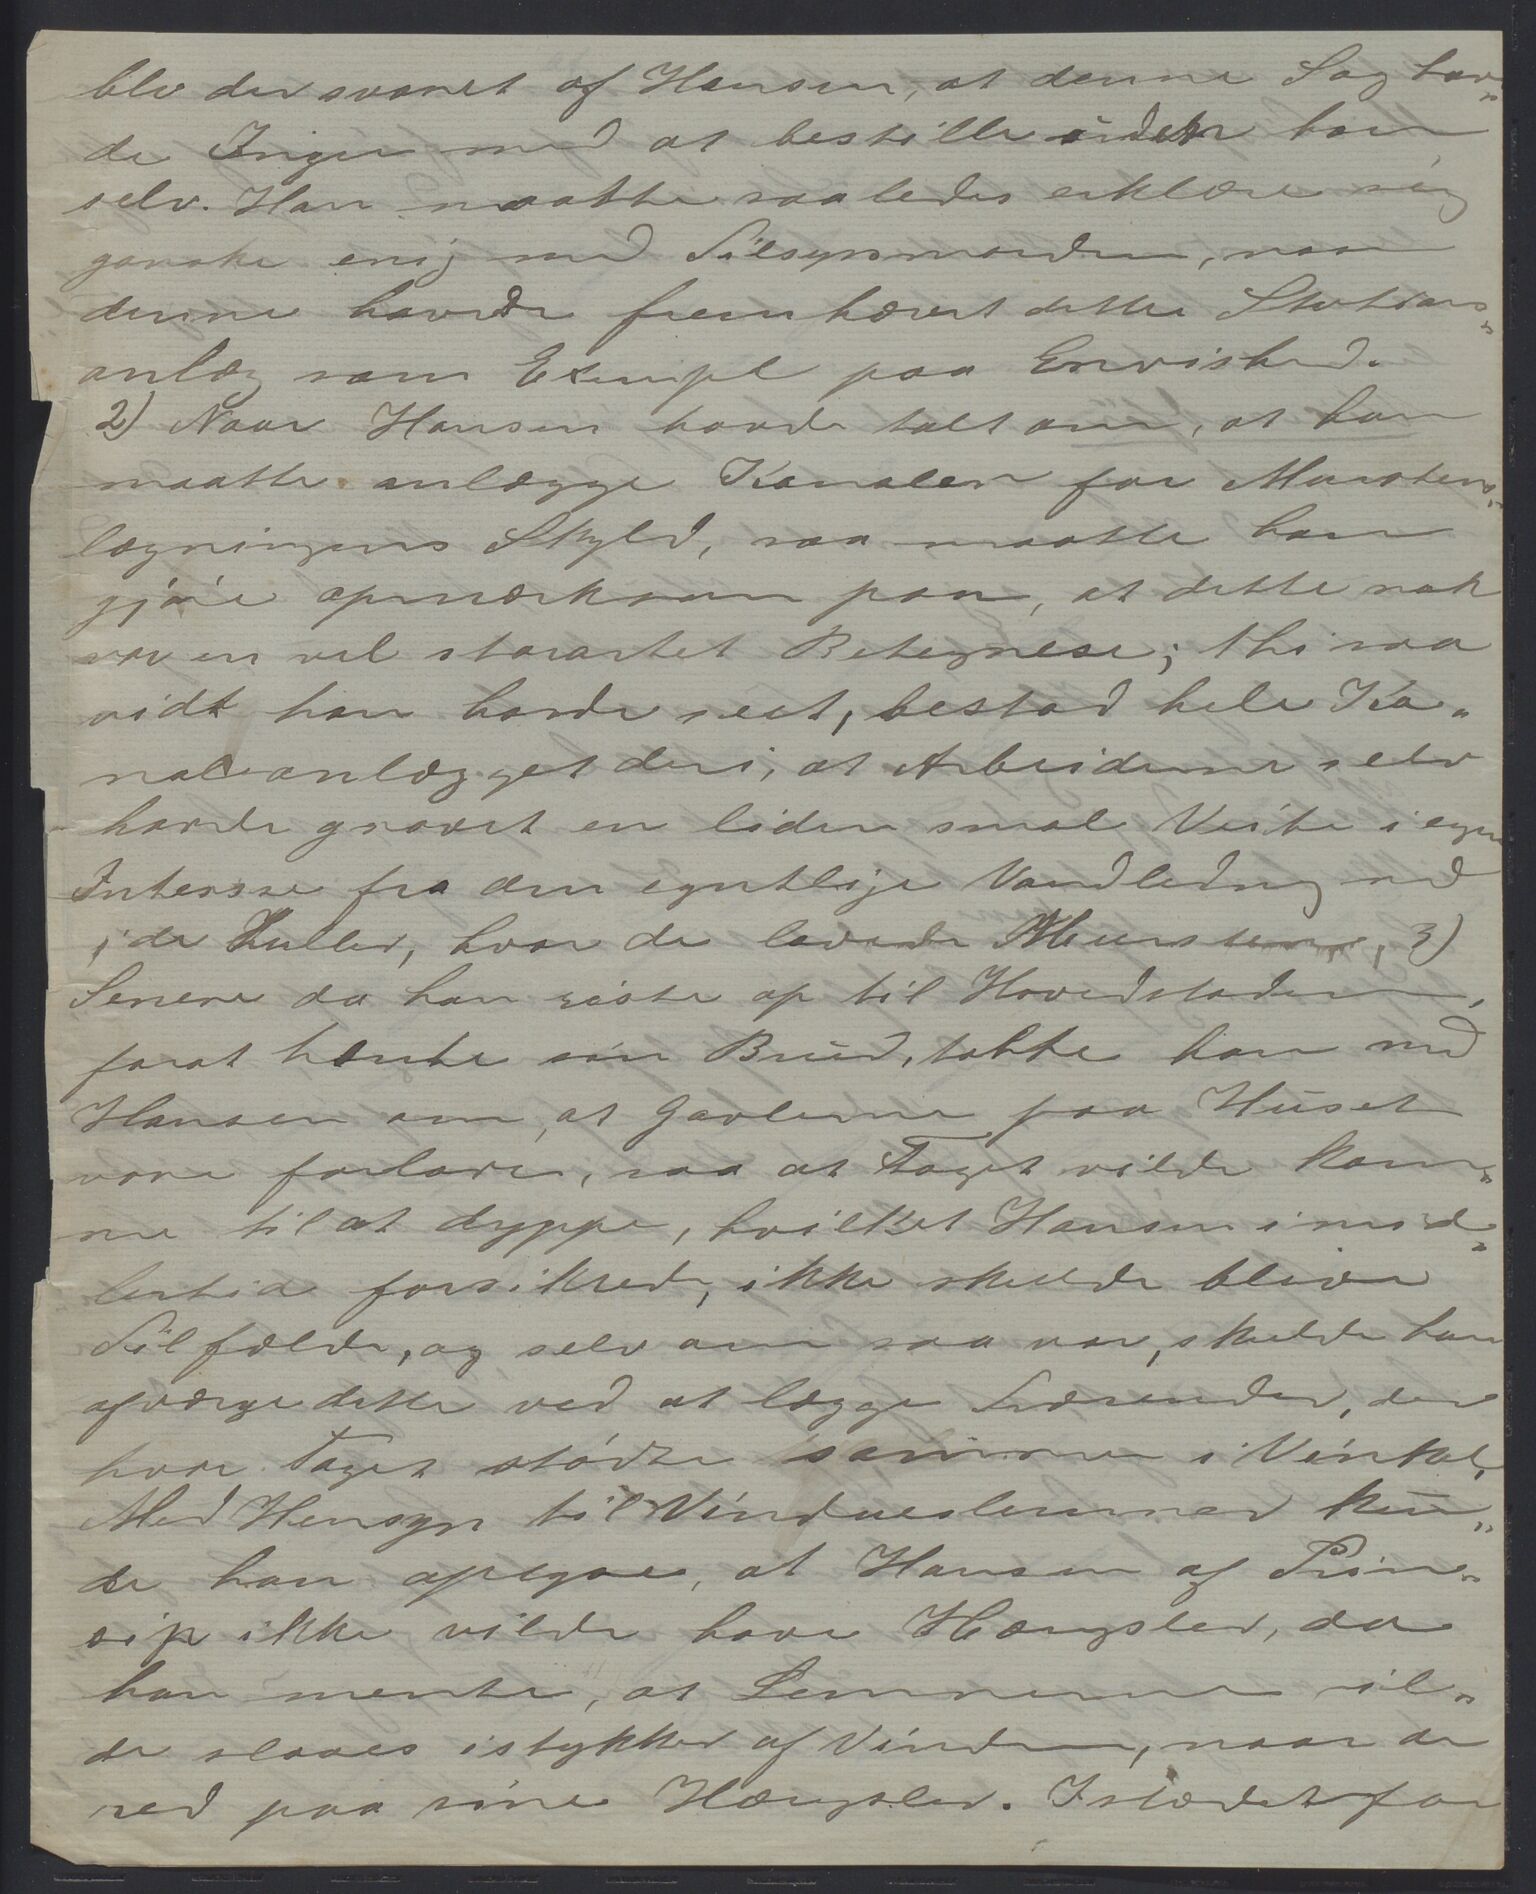 blev der svaret af Hansen, at denne Sag hav„
de Ingen med at bestille uden han
selv. Han maatte saaledes erklære sig
ganske enig med Tilsynsmanden, naar
denne havde fremhævet dette Stations„
anlæg som Exempel paa Envished.
2) Naar Hansen havde talt om, at han
maatte anlægge Kanaler for Murstens„
lægningens Skyld, saa maatte han
gjøre opmærksom paa, at dette nok
var en vel storartet Betegnelse; thi saa
vidt han havde seet, bestod hele Ka„
nalanlægget deri, at Arbeiderne selv
havde gravet en liden smal Veite i egen
Interesse fra den egentlige Vandledning ned
i de Huller, hvor de lavede Mursten, 3)
Senere da han reiste op til Hovedstaden,
forat hente sin Brud, talte han med
Hansen om, at Gavlerne paa Huset
vare forlave, saa at Taget vilde kom„
me til at dryppe, hvilket Hansen imid„
lertid forsikrede, ikke skulde blive
Tilfælde, og selv om saa var, skulde han
afværge dette ved at lægge Trærender, der
hvor Taget stødte sammen i Vinkel,
Med Hensyn til Vindueslemmer kun„
de han oplyse, at Hansen af Prin„
sip ikke vilde have Hængsler, da
han mente, at Lemmerne vil„
de slaaes istykker af Vinden, naar de
red paa sine Hængsler. Istædetfor